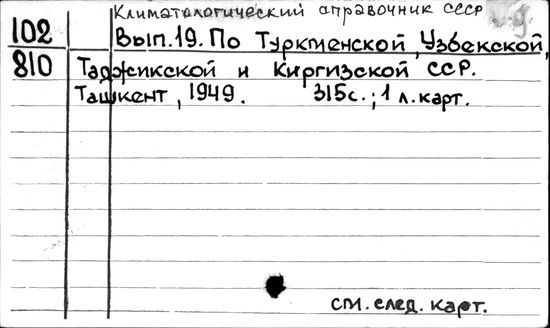 Климатологический справочник СССР
102 Вып.19. По Туркменской, Узбекской,
810 Таджикской и Киргизской ССР.
Ташкент, 1949. 315с.; 1 л. карт.
см. след. карт.